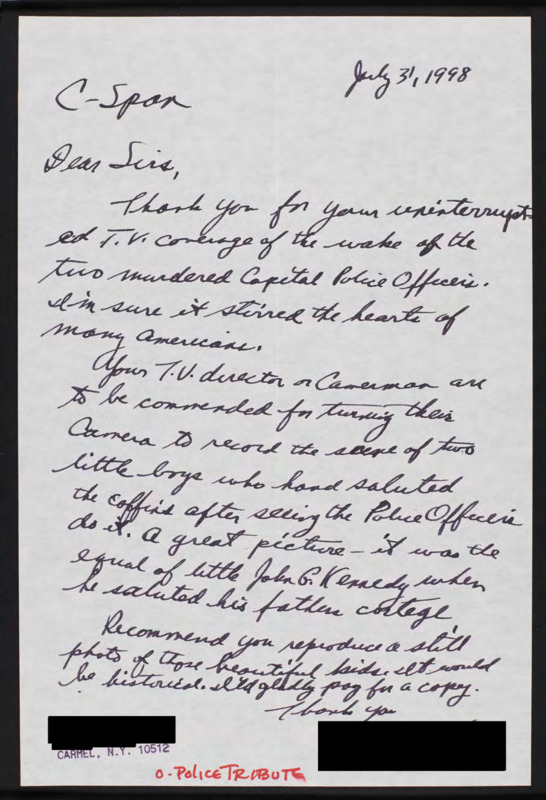 July 31, 1998
C-Span
Dear Sirs,
Thank you for your uninterrupt-
ed T.V. coverage of the wake of the
two murdered Capital Police Officers.
I'm sure it stirred the hearts of
many Americans.
Your T.V. director or Camerman are
to be commended for turning their
Camera to record the scene of two
little boys who hand saluted
the coffins after seeing the Police Officers
do it. A great picture - it was the
equal of little John G. Kennedy when
he saluted his fathers cortege.
Recommend you reproduce a still
photo of those beautiful kids. It would
be historical. I'd gladly pay for a copy.
Thank you
CARMEL, N.Y. 10512
O-POLICE TRIBUTE